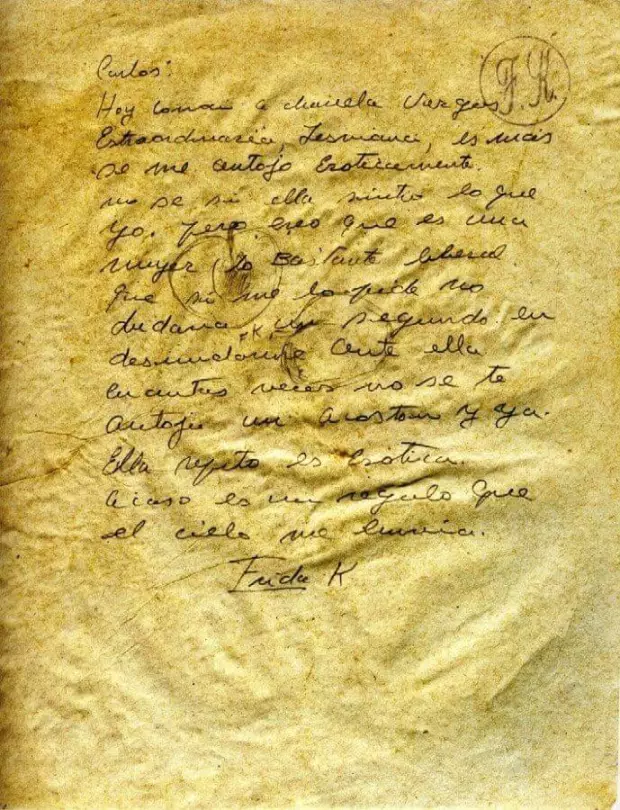 Carlos:
F. K.
Hoy conocí a chavela Vargas.
Extraordinaria, Lesviana, es más
se me antojó Eroticamente.
no se si ella sintio lo que
yo. pero creo que es una
mujer lo Bastante liberal
Que si me lo pide no
dudaria un segundo en
F K
desnudarme ante ella
cuantas veces no se te
antoja un acoston y ya.
Ella repito es Erótica.
acaso es un regalo Que
el cielo me envia.
Frida K